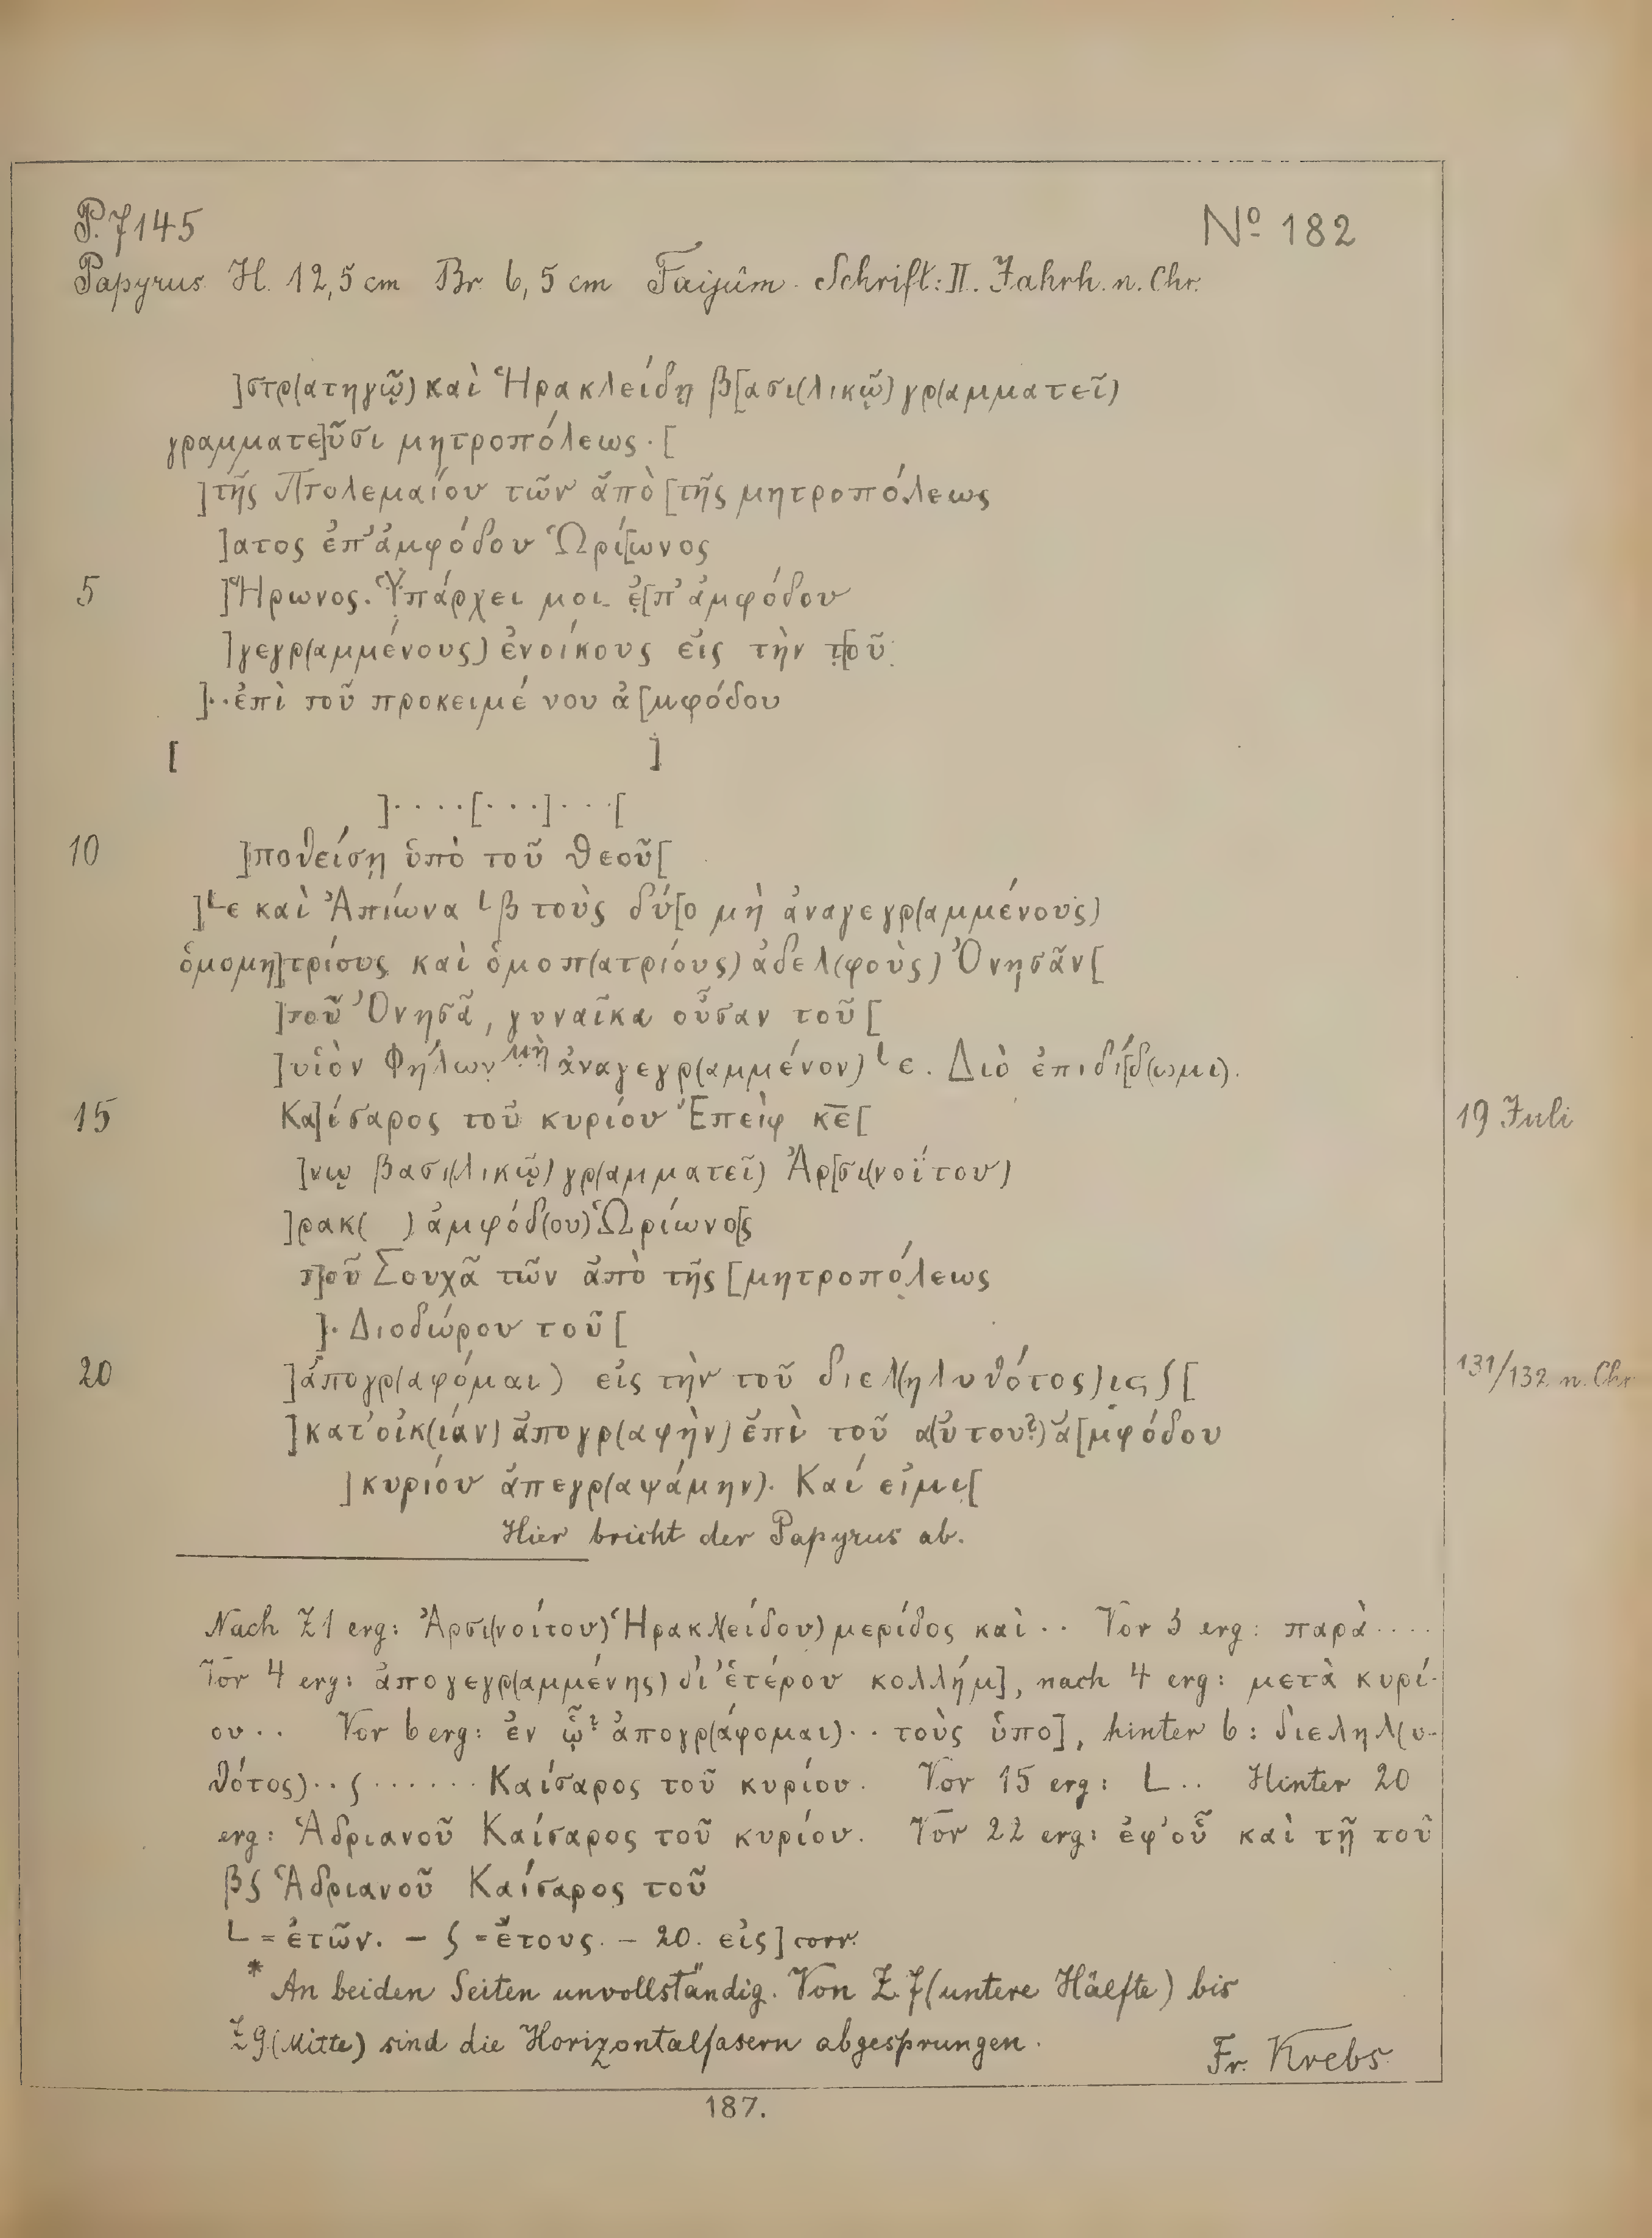 P. 7145
Nº 182
Papyrus H. 12,5 cm Br. 6,5 cm Faijûm. Schrift: II. Jahrh. n. Chr.
]στρ(ατηγῷ) καὶ Ἡρακλείδῃ β[ασι(λικῷ) γρ(αμματεῖ)
γραμματε]ῦσι μητροπόλεως · [
]τῆς Πτολεμαίου τῶν ἀπὸ [τῆς μητροπόλεως
]ατος ἐπ' ἀμφόδου Ὡρί[ωνος
5 ]Ἥρωνος. Ὑπάρχει μοι ἐ[π' ἀμφόδου
]γεγρ(αμμένους) ἐνοίκους εἰς τὴν τ[οῦ
]··ἐπὶ τοῦ προκειμένου ἀ[μφόδου
[ ]
]····[···]···[
10 ]ποθείσῃ ὑπὸ τοῦ θεοῦ[
]Lε καὶ Ἀπίωνα Lβ τοὺς δύ[ο μὴ ἀναγεγρ(αμμένους)
ὁμομη]τρίους καὶ ὁμοπ(ατρίους) ἀδελ(φοὺς) Ὀνησᾶν[
]τοῦ Ὀνησᾶ, γυναῖκα οὖσαν τοῦ [
]υἱὸν Φήλων μὴ ἀναγεγρ(αμμένον) Lε. Διὸ ἐπιδί[δ(ωμι).
15 Κα]ίσαρος τοῦ κυρίου Ἐπεὶφ κε̅[
19 Juli
]νῳ βασι(λικῷ) γρ(αμματεῖ) Ἀρ[σι(νοΐτου)
]ρακ( ) ἀμφόδ(ου) Ὡρίωνο[ς
τ]οῦ Σουχᾶ τῶν ἀπὸ τῆς [μητροπόλεως
]· Διοδώρου τοῦ [
20 ]ἀπογρ(αφόμαι) εἰς τὴν τοῦ διελ(ηλυθότος) ιϛ ʃ [
131/132 n. Chr.
]κατ' οἰκ(ίαν) ἀπογρ(αφὴν) ἐπὶ τοῦ α(ὐτου?) ἀ[μφόδου
]κυρίου ἀπεγρ(αψάμην). Καί εἰμι[
Hier bricht der Papyrus ab.
Nach Z 1 erg: Ἀρσι(νοίτου) Ἡρακλ(είδου) μερίδος καὶ ·· Vor 3 erg: παρὰ ····
Vor 4 erg: ἀπογεγρ(αμμένης) δι' ἑτέρου κολλήμ], nach 4 erg: μετὰ κυρί-
ου ·· Vor 6 erg: ἐν ᾧ? ἀπογρ(άφομαι) ·· τοὺς ὑπο], hinter 6: διεληλ(υ-
θότος) ·· ʃ ······ Καίσαρος τοῦ κυρίου. Vor 15 erg: L ·· Hinter 20
erg: Ἁδριανοῦ Καίσαρος τοῦ κυρίου. Vor 22 erg: ἐφ' οὗ καὶ τῇ τοῦ
βʃ Ἁδριανοῦ Καίσαρος τοῦ
L = ἐτῶν. – ʃ = ἔτους. – 20. εἰς] corr.
* An beiden Seiten unvollständig. Von Z. 7 (untere Hälfte) bis
Z 9 (Mitte) sind die Horizontalfasern abgesprungen.
Fr. Krebs
187.